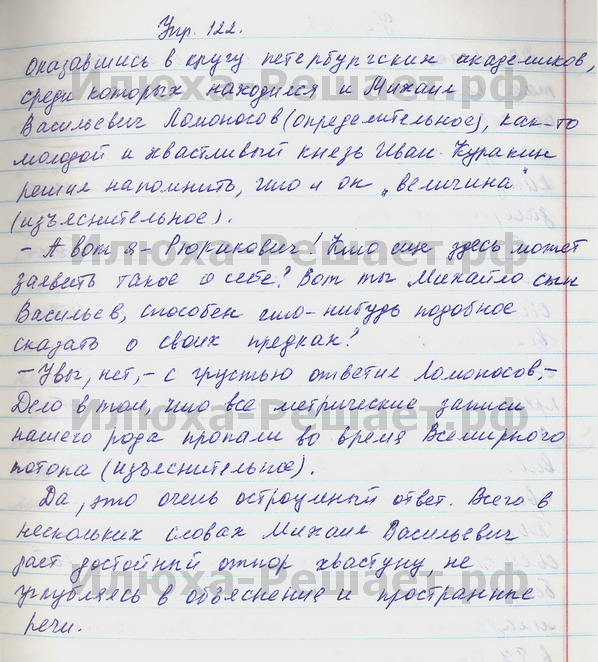 Упр. 122.
Оказавшись в кругу петербургских академиков,
среди которых находился и Михаил
Васильевич Ломоносов (определительное), как-то
молодой и хвастливый князь Иван Куракин
решил напомнить, что и он "величина"
(изъяснительное).
- А вот я - Рюрикович! Кто еще здесь может
заявить такое о себе? Вот ты Михайло сын
Васильев, способен что-нибудь подобное
сказать о своих предках?
- Увы, нет, - с грустью ответил Ломоносов, -
Дело в том, что все метрические записи
нашего рода пропали во время Всемирного
потопа (изъяснительное).
Да, это очень остроумный ответ. Всего в
нескольких словах Михаил Васильевич
даст достойный отпор хвастуну, не
углубляясь в объяснения и пространные
речи.
Илюха-Решает.рф
Илюха-Решает.рф
Илюха-Решает.рф
Илюха-Решает.рф